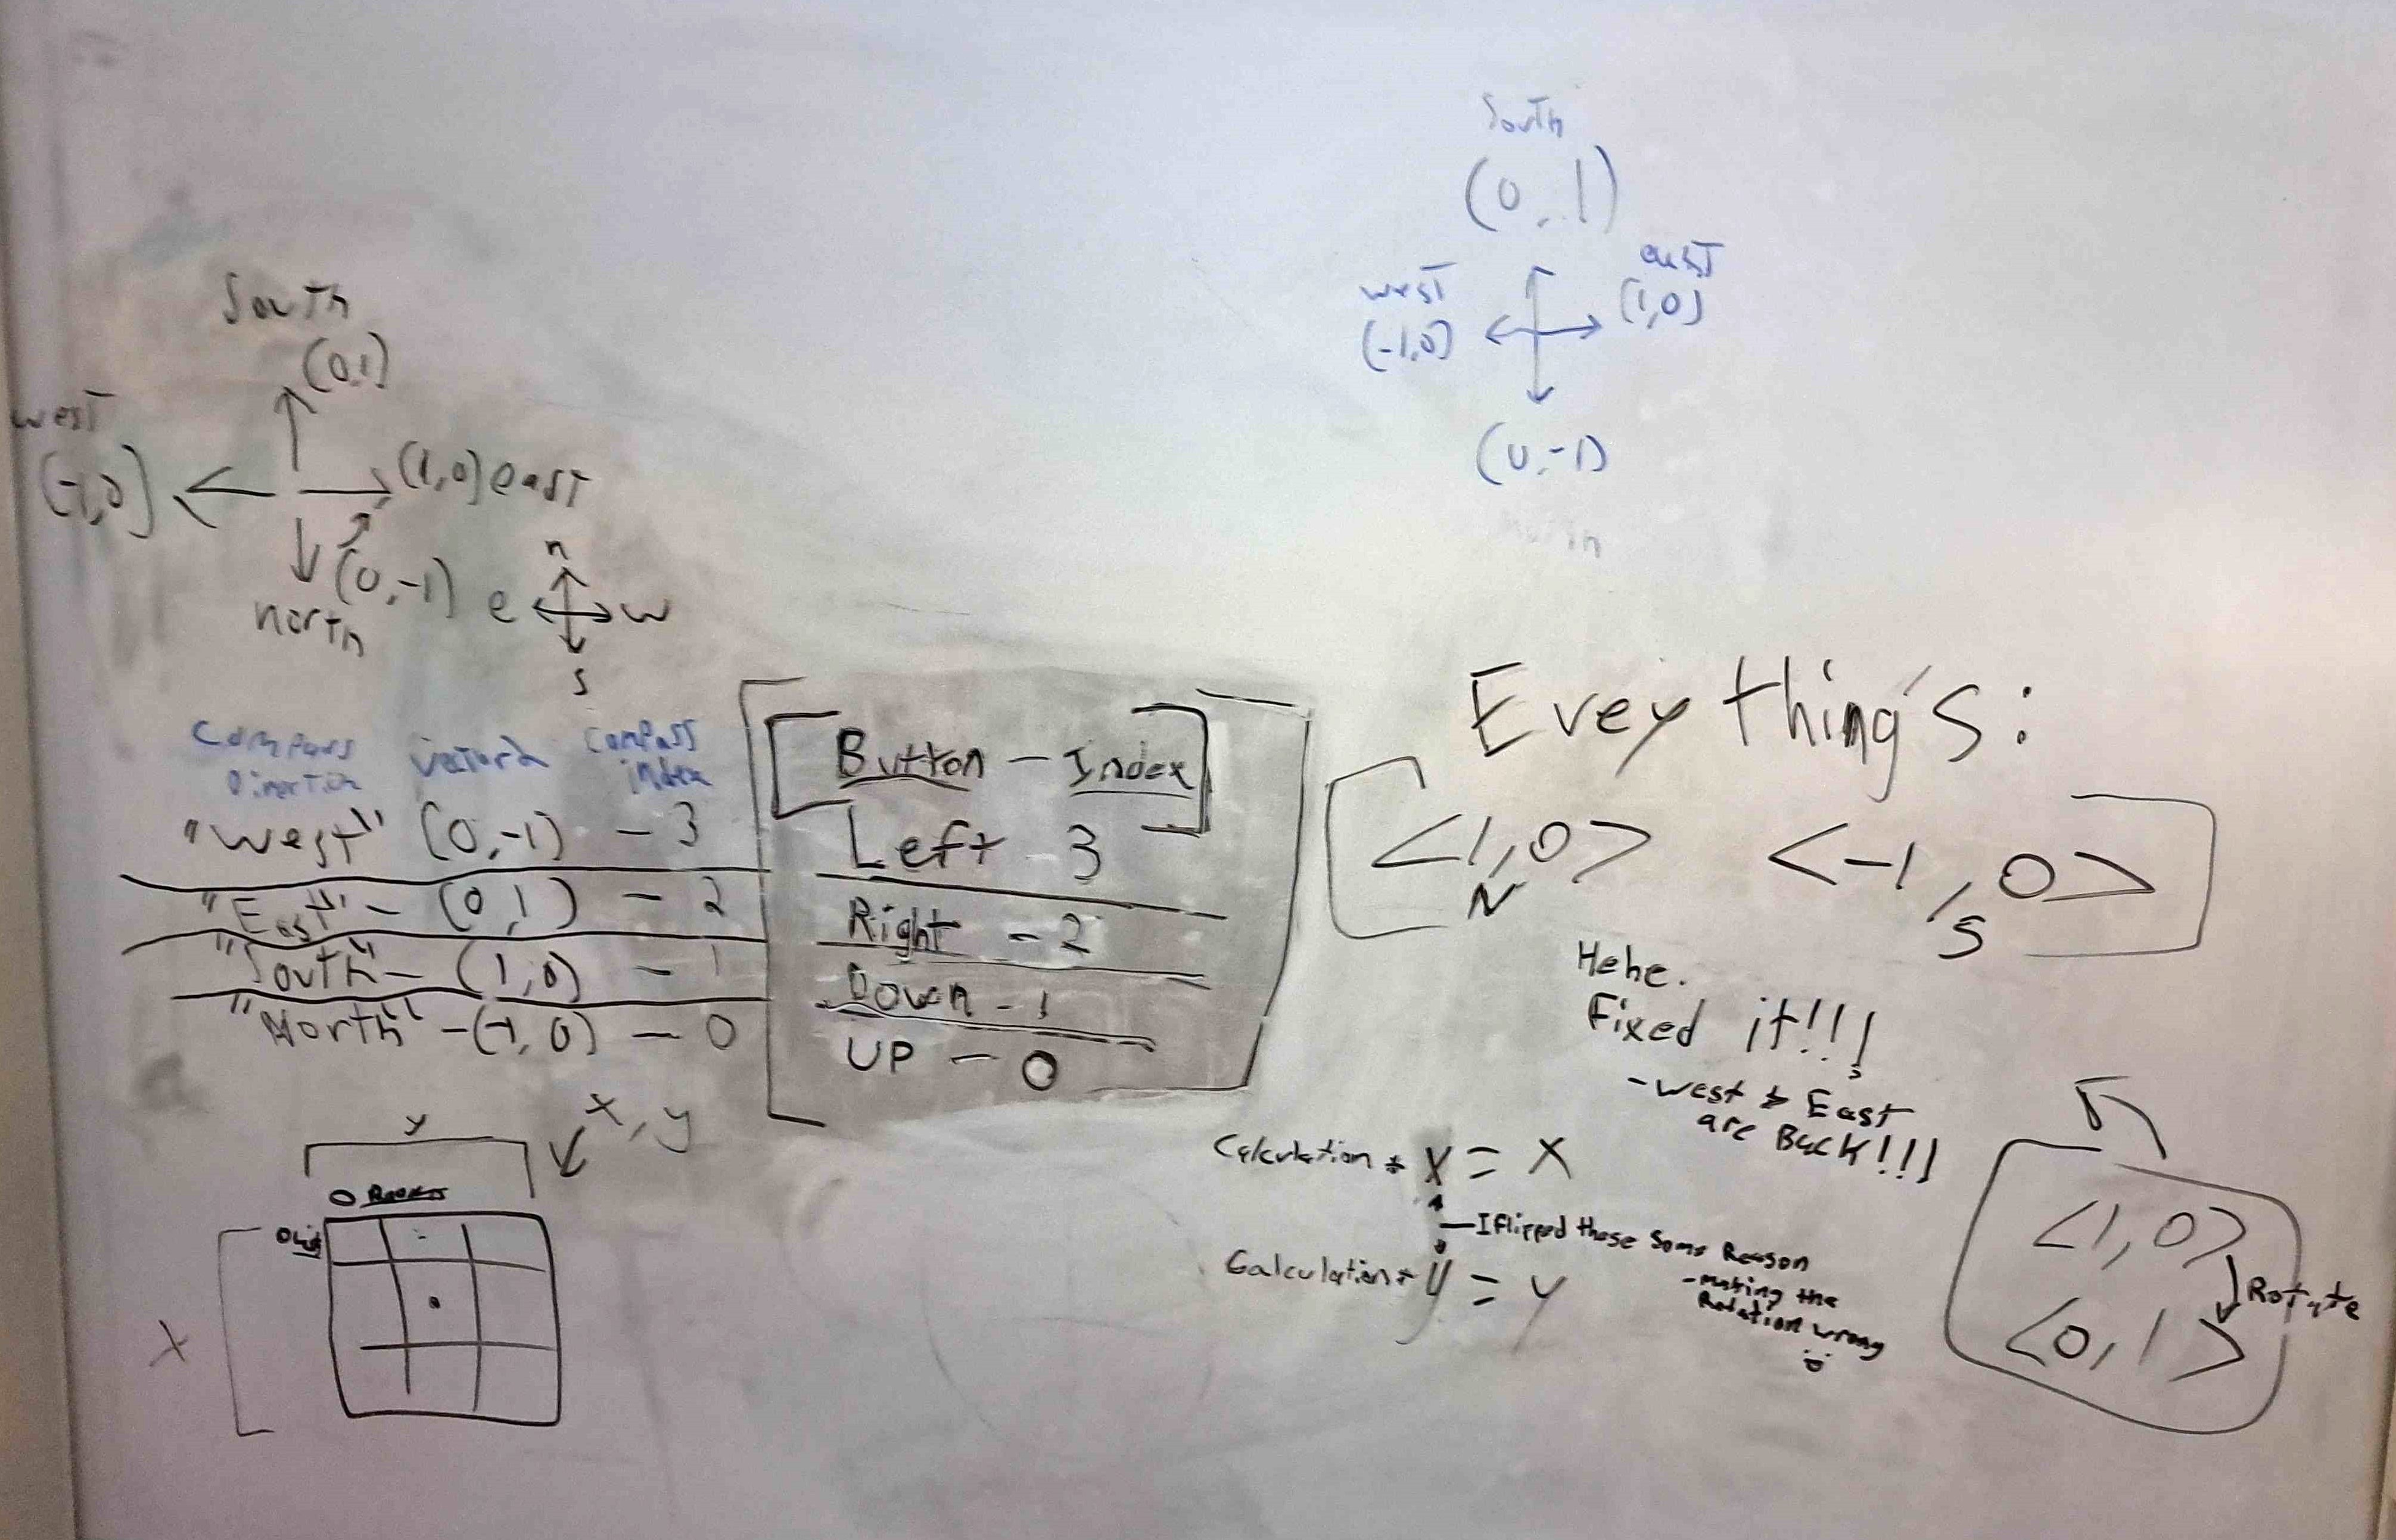 South
(0,1)
west
(-1,0)
(1,0) east
(0,-1)
north
n
e
w
s
South
(0,1)
west
(-1,0)
east
(1,0)
(0,-1)
Compass
Direction
vector
Compass
index
"West" (0,-1) - 3
"East" - (0,1) - 2
"South" - (1,0) - 1
"North" - (-1,0) - 0
Button - Index
Left 3
Right - 2
Down - 1
UP - 0
Evey thing's:
<1,0>
N
<-1,0>
S
Hehe.
Fixed it!!!
- West & East
are Back!!!
x, y
y
0
x
Calculation + x = x
- I flipped those some Reason
- Making the
Rotation wrong
Calculation + y = y
<1,0>
Rotate
<0,1>